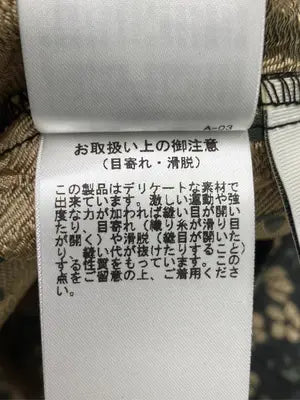 A-03
お取扱い上の御注意
(目寄れ・滑脱)
この製品はデリケートな素材で
出来ています。激しい運動や強
度な力が加われば縫い目が開い
たり、目寄れ(織り糸が滑り目
が開く)や滑脱(縫目が開いた
り、縫い代が抜けたりすること)
する性質をもっています。この
点をご留意の上、ご着用くださ
い。